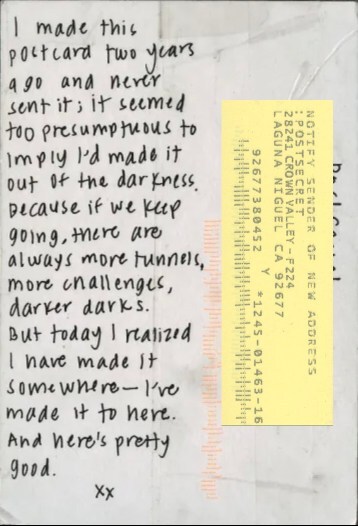 I made this
postcard two years
ago and never
sent it; it seemed
too presumptuous to
imply I'd made it
out of the darkness.
Because if we keep
going, there are
always more tunnels,
more challenges,
darker darks.
But today I realized
I have made it
somewhere—I've
made it to here.
And here's pretty
good.
xx
NOTIFY SENDER OF NEW ADDRESS
:POSTSECRET
28241 CROWN VALLEY-F224
LAGUNA NIGUEL CA 92677
92677380452 Y *1245-01463-16